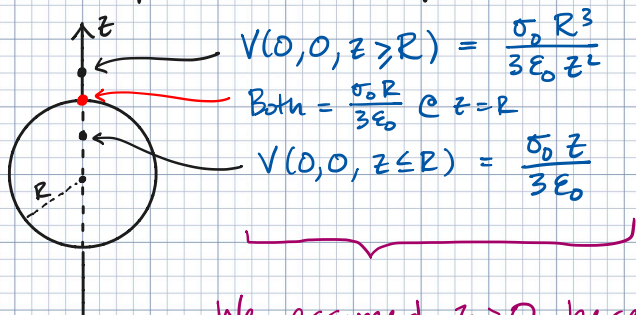 z
V(0,0,z≥R) = σ₀ R³ / 3ε₀ z²
Both = σ₀ R / 3ε₀ @ z=R
V(0,0,z≤R) = σ₀ z / 3ε₀
R